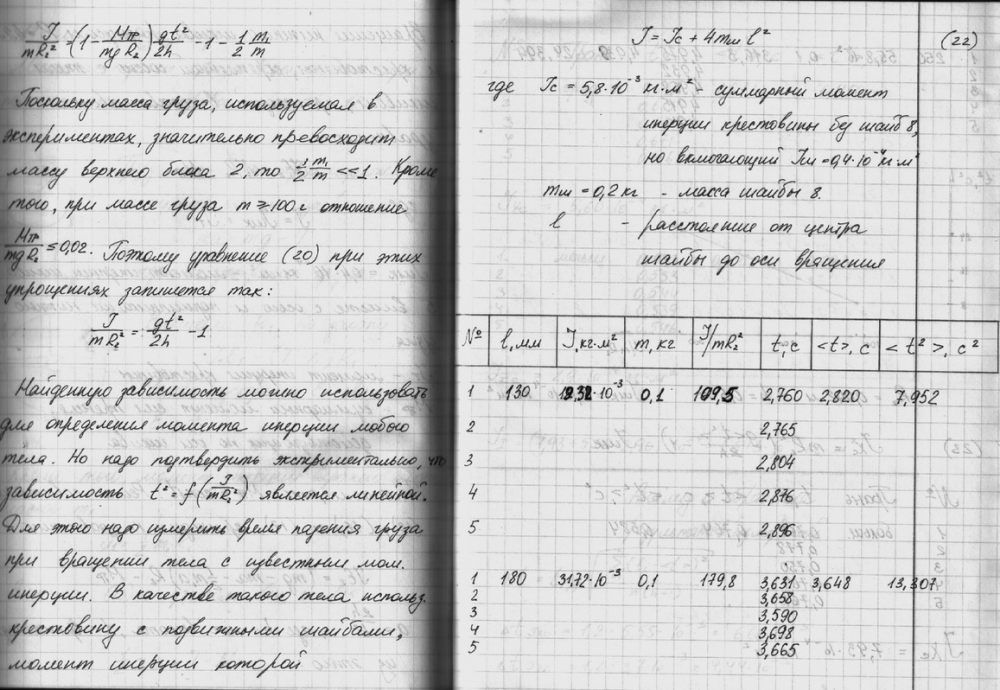 J/mR₂² = (1 - Mтр/mgR₂) gt²/2h - 1 - 1/2 m₁/m
Поскольку масса груза, используемая в
экспериментах, значительно превосходит
массу верхнего блока 2, то 1/2 m₁/m << 1. Кроме
того, при массе груза m ≥ 100 г отношение
Mтр/mgR₂ ≤ 0,02. Поэтому уравнение (20) при этих
упрощениях запишется так:
J/mR₂² = gt²/2h - 1
Найденную зависимость можно использовать
для определения момента инерции любого
тела. Но надо подтвердить экспериментально, что
зависимость t² = f(J/mR₂²) является линейной.
Для этого надо измерить время падения груза
при вращении тела с известным мом.
инерции. В качестве такого тела использ.
крестовину с подвижными шайбами,
момент инерции которой
J = Jc + 4mш l² (22)
где Jc = 5,8·10⁻³ кг·м² - суммарный момент
инерции крестовины без шайб 8,
но включающий Jш = 0,4·10⁻⁴ кг·м²
mш = 0,2 кг - масса шайбы 8.
l - расстояние от центра
шайбы до оси вращения
№ l, мм J, кг·м² m, кг J/mR₂² t, с <t>, с <t²>, с²
1 130 ·10⁻³ 0,1 109,5 2,760 2,820 7,952
2 2,765
3 2,804
4 2,876
5 2,896
1 180 31,72·10⁻³ 0,1 179,8 3,631 3,648 13,307
2 3,658
3 3,590
4 3,698
5 3,665